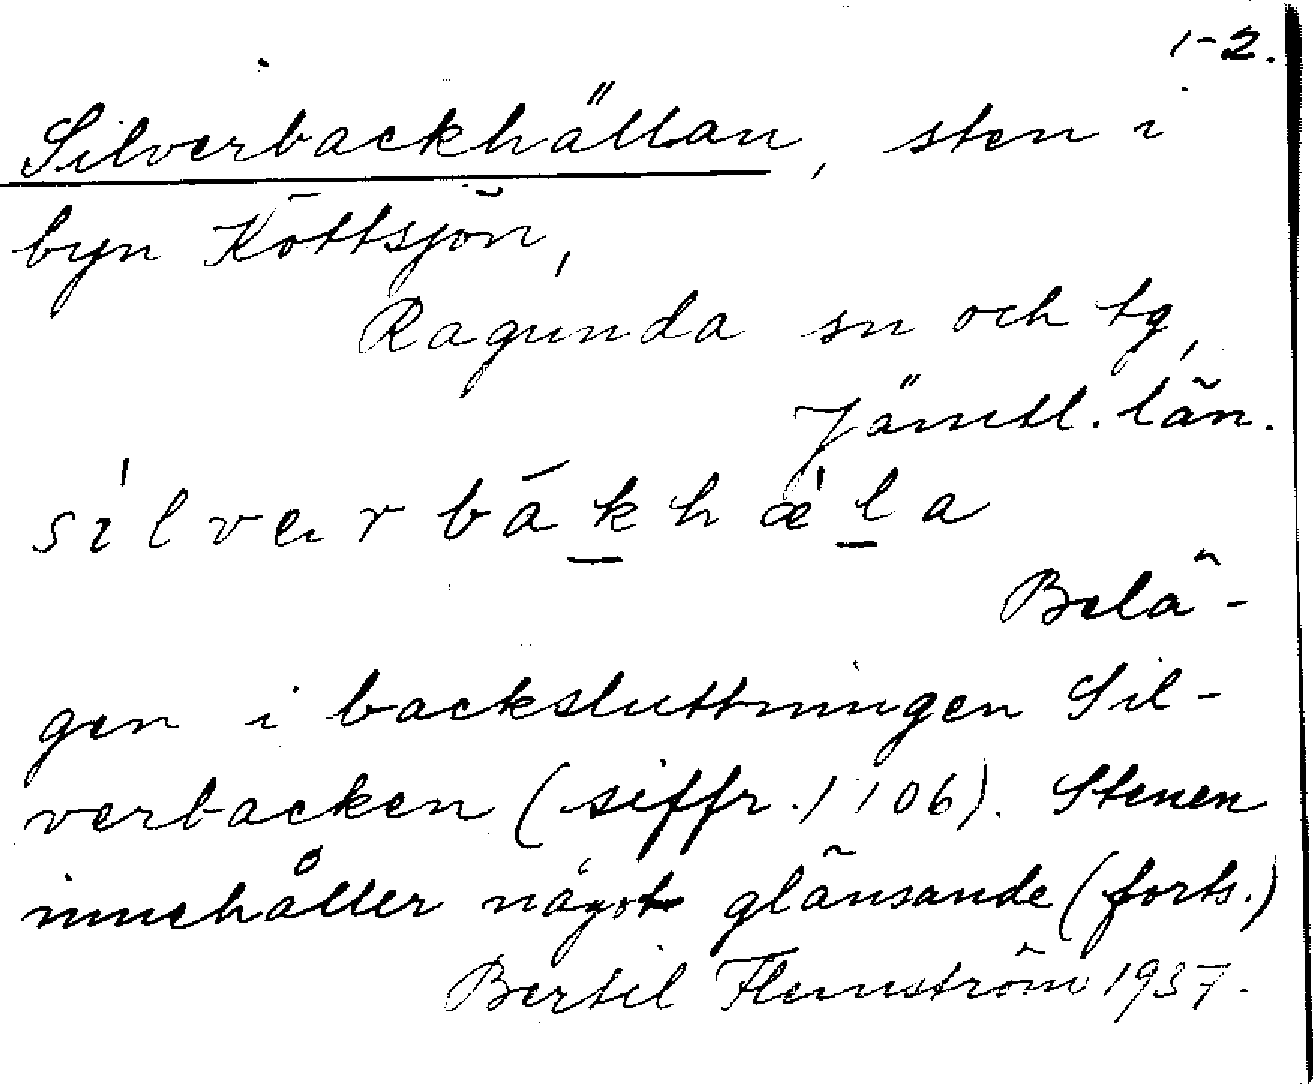 1-2.
Silverbackhällan, sten i
byn Köttsjön,
Ragunda sn och tg,
Jämtl. län.
silverbákhæ̀la
Belä-
gen i backsluttningen Sil-
verbacken (siffr. 1106). Stenen
innehåller något glänsande (forts.)
Bertil Flemström 1937.